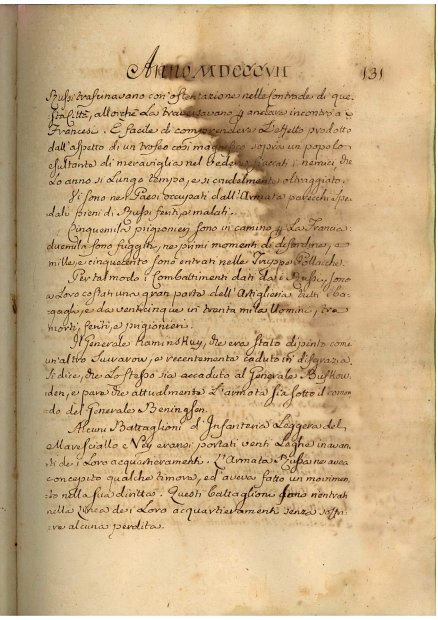 Anno MDCCCVII
131
Russi trascinavano con ostentazione nelle contrade di que-
sta Città, allorchè la traversavano p andare incontro a
Francesi. È facile di comprendere l'effetto prodotto
dall'aspetto di un trofeo così magnifico sopra un popolo
esultante di meraviglia nel vedere fiaccati i nemici che
lo anno sì lungo tempo, e sì crudelmente oltraggiato.
Vi sono ne Paesi occupati dall'Armata parecchi spe-
dali pieni di Russi feriti, e malati.
Cinquemila prigionieri sono in camino p la Francia
duemila sono fuggiti, ne primi momenti di disordine, e
mille, e cinquecento sono entrati nelle Truppe Pollacche.
Per tal modo i Combattimenti dati da i Russi, sono
a Loro costati una gran parte dell'Artiglieria tutti i ba-
gagli, e da venticinque in trenta mila Uomini, tra
morti, feriti, e prigionieri.
Il Generale Kaminskuy, che era stato dipinto come
un'altro Suvvarow, e recentemente caduto in disgrazia
Si dice, che lo stesso sia accaduto al Generale Buskow-
iden, e pare che attualmente l'armata sia sotto il coman-
do del Generale Beningsen.
Alcuni Battaglioni d'Infanteria Leggera del
Maresciallo Ney eransi portati venti Leghe in avan-
ti de i Loro acquartieramenti. L'Armata Russa ne avea
concepito qualche timore, ed aveva fatto un movimen-
to nella sua diritta. Questi battaglioni sono rientrati
nella Linea de i Loro acquartieramenti senza soffri-
re alcuna perdita.